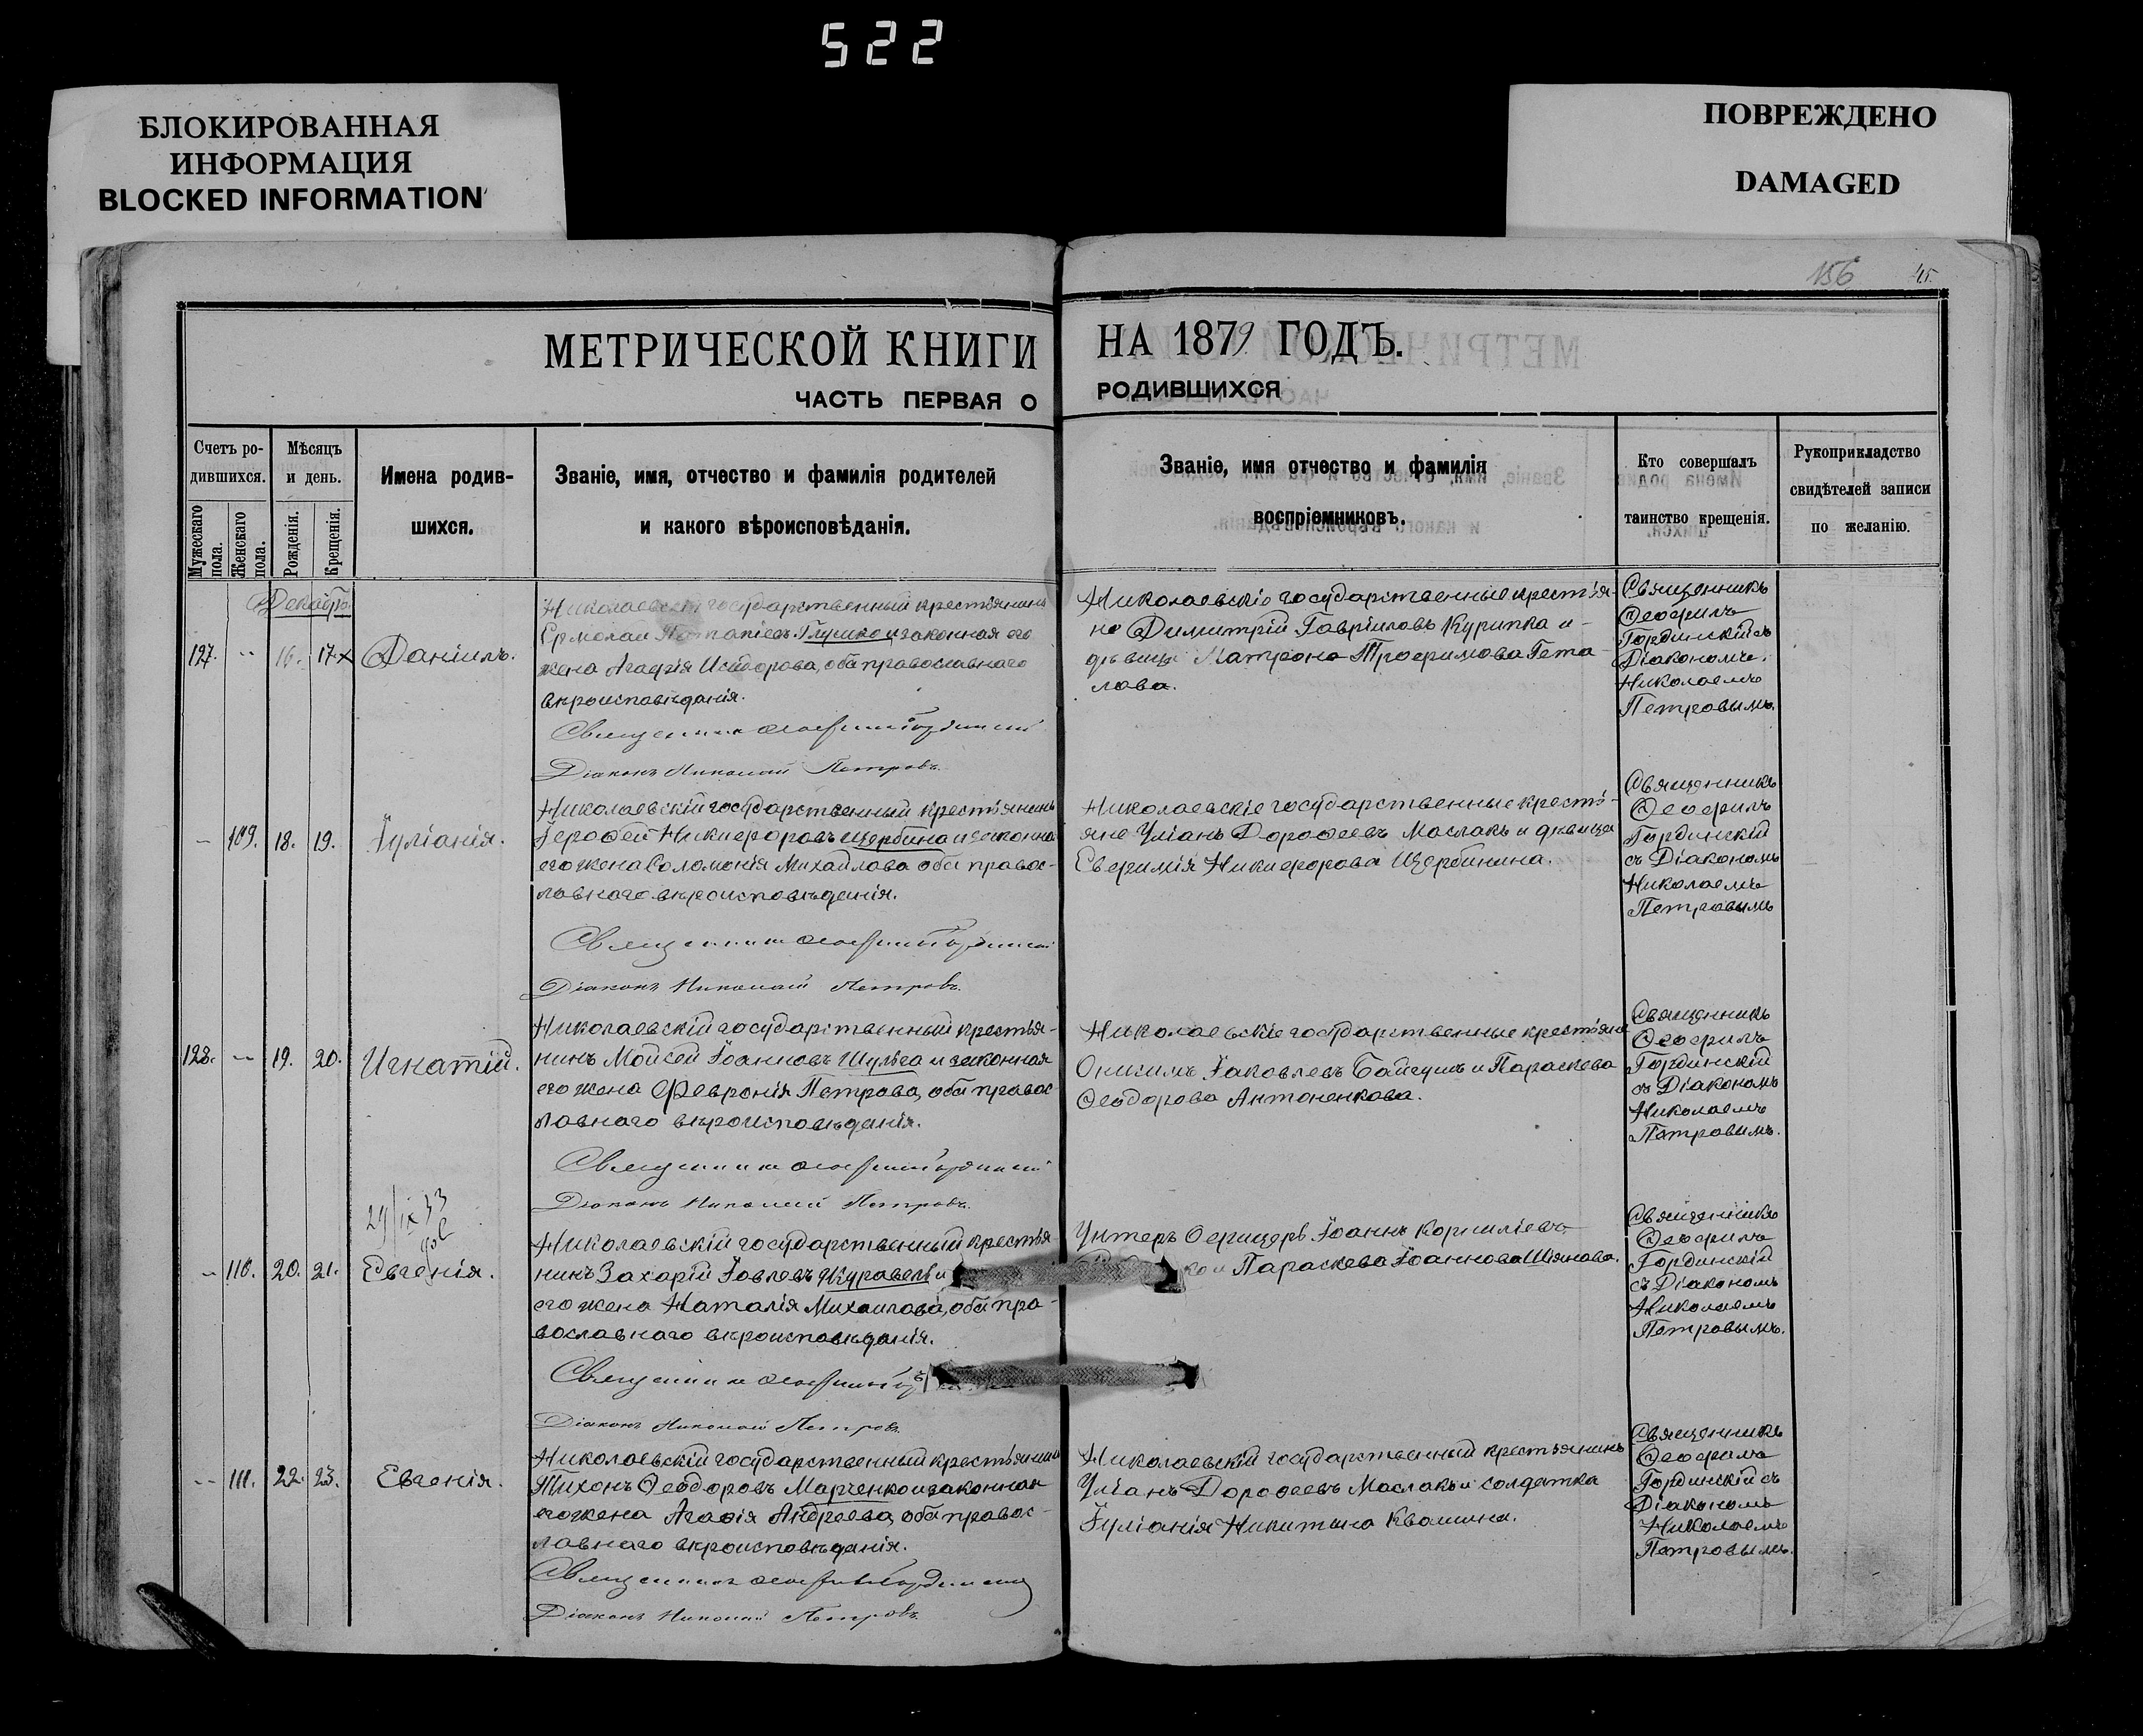 522
БЛОКИРОВАННАЯ
ИНФОРМАЦИЯ
BLOCKED INFORMATION
ПОВРЕЖДЕНО
DAMAGED
156
45.
МЕТРИЧЕСКОЙ КНИГИ НА 1879 ГОДЪ.
ЧАСТЬ ПЕРВАЯ О РОДИВШИХСЯ
Счетъ ро-
дившихся.
Мужескаго пола.
Женскаго пола.
Мѣсяцъ
и день.
Рожденія.
Крещенія.
Имена родив-
шихся.
Званіе, имя, отчество и фамилія родителей
и какого вѣроисповѣданія.
Званіе, имя отчество и фамилія
воспріемниковъ.
Кто совершалъ
таинство крещенія.
Рукоприкладство
свидѣтелей записи
по желанію.
Декабрь
127. 16. 17. Даніилъ.
Николаевскій государственный крестьянинъ
Ермолай Глушко и законная его
жена Агафія Исидорова, оба православнаго
вѣроисповѣданія.
Священникъ Ѳеофилъ Гординскій
Діаконъ Николай Петровъ.
Николаевскіе государственные крестья-
не Димитрій Гавріиловъ Курипка и
дѣвица Матрона Трофимова Гета-
лова.
Священникъ
Ѳеофилъ
Гординскій съ
Діакономъ
Николаемъ
Петровымъ.
– 109. 18. 19. Іуліанія.
Николаевскій государственный крестьянинъ
Іерофей Никифоровъ Щербина и законна
его жена Соломонія Михайлова оба правос-
лавнаго вѣроисповѣданія.
Священникъ Ѳеофилъ Гординскій
Діаконъ Николай Петровъ.
Николаевскіе государственные кресть-
яне Уліанъ Дорофеевъ Маслакъ и дѣвица
Евфимія Никифорова Щербинина.
Священникъ
Ѳеофилъ
Гординскій
съ Діакономъ
Николаемъ
Петровымъ
128. – 19. 20. Игнатій.
Николаевскій государственный крестья-
нинъ Мойсей Іоанновъ Шульга и законная
его жена Февронія Петрова, оба правос-
лавнаго вѣроисповѣданія.
Священникъ Ѳеофилъ Гординскій
Діаконъ Николай Петровъ.
Николаевскіе государственные крестьяне
Онисимъ Іаковлевъ Байгушъ и Параскева
Ѳеодорова Антоненкова.
Священникъ
Ѳеофилъ
Гординскій
съ Діакономъ
Николаемъ
Петровымъ.
– 110. 20. 21. Евгенія.
Николаевскій государственный крестья-
нинъ Захарій Іовлевъ Журавель и
его жена Наталія Михаилова, оба пра-
вославнаго вѣроисповѣданія.
Священникъ Ѳеофилъ
Діаконъ Николай Петровъ.
Унтеръ Офицеръ Іоаннъ Корниліевъ
и Параскева Іоаннова Шіянова.
Священникъ
Ѳеофилъ
Гординскій
съ Діакономъ
Николаемъ
Петровымъ.
– 111. 22. 23. Евгенія.
Николаевскій государственный крестьянинъ
Тихонъ Ѳеодоровъ Марченко и законная
его жена Агафія Андреева, оба правос-
лавнаго вѣроисповѣданія.
Священникъ Ѳеофилъ Гординскій
Діаконъ Николай Петровъ.
Николаевскій государственный крестьянинъ
Уліанъ Дорофеевъ Маслакъ и солдатка
Іуліанія Никитина Квашина.
Священникъ
Ѳеофилъ
Гординскій съ
Діакономъ
Николаемъ
Петровымъ.